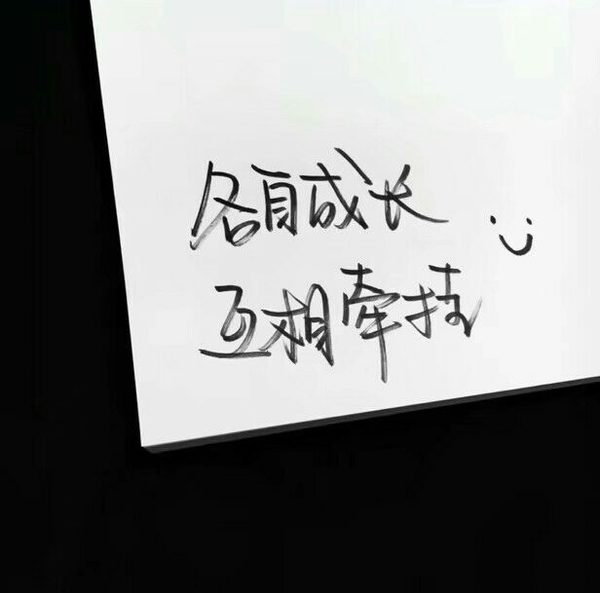 各自成长
互相牵挂